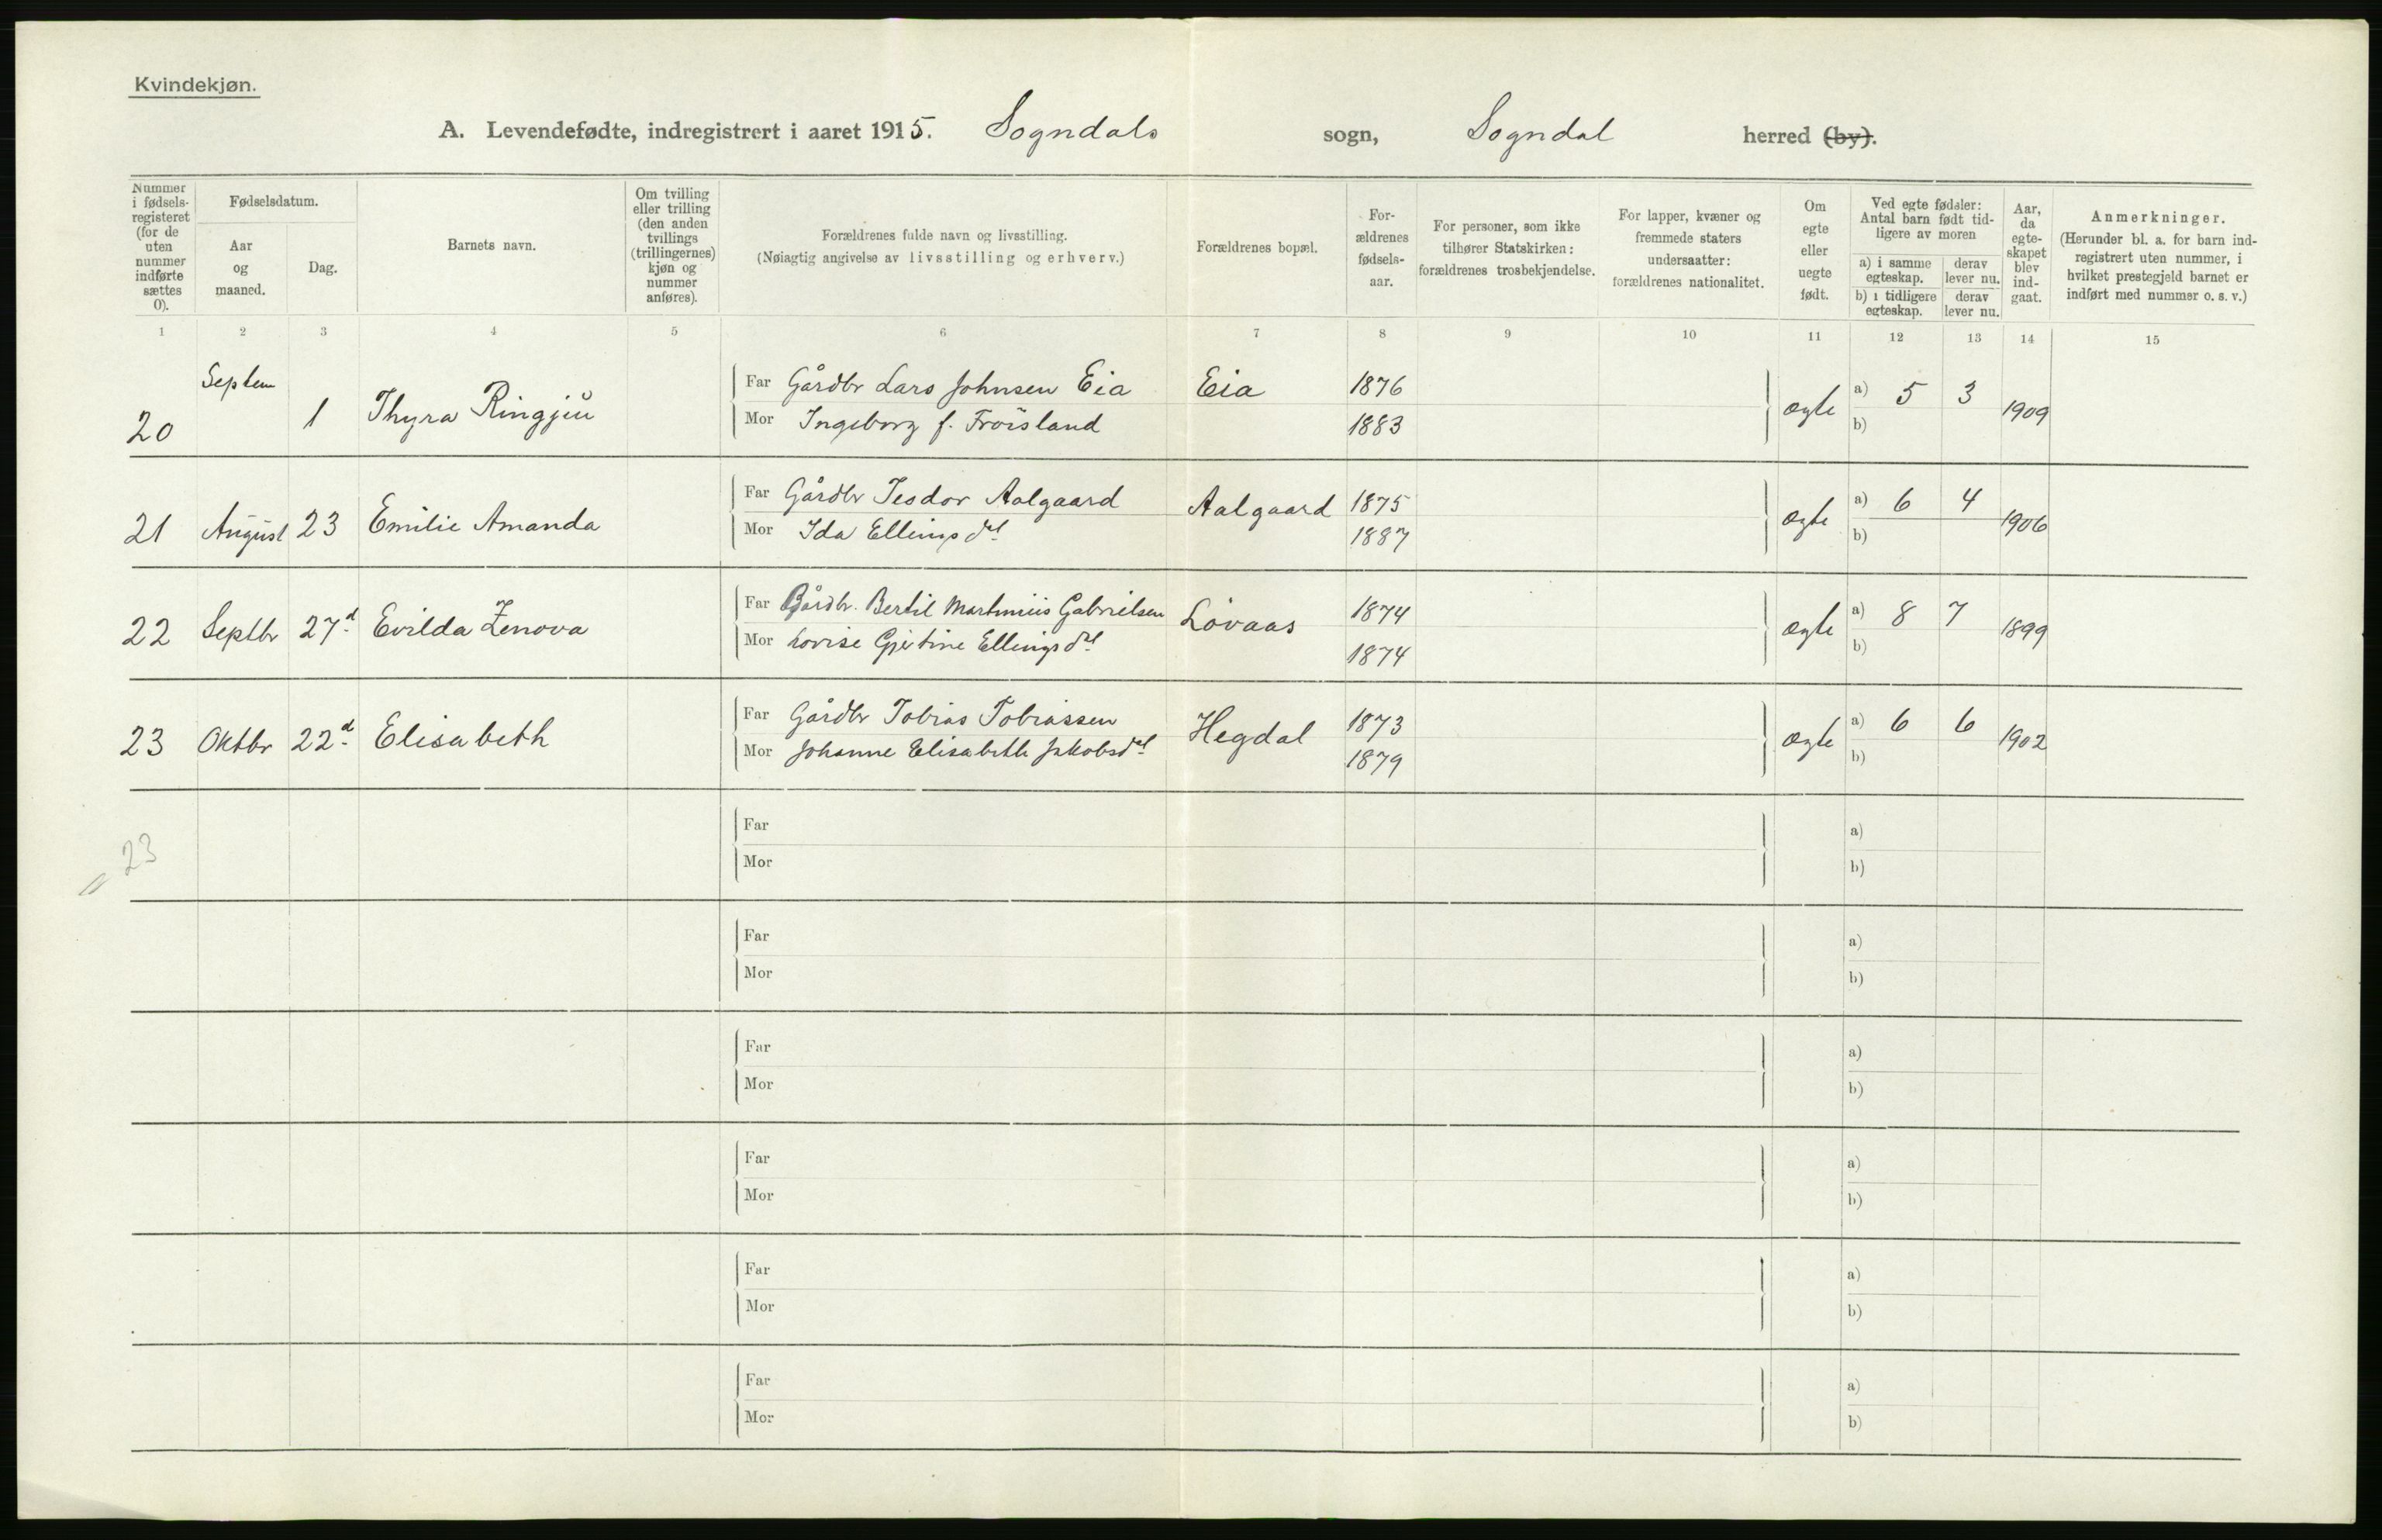 Kvindekjøn.
A. Levendefødte, indregistrert i aaret 1915. Sogndals sogn, Sogndal herred (by).
Nummer i fødsels-registeret (for de uten nummer indførte sættes 0).
Fødselsdatum.
Aar og maaned.
Dag.
Barnets navn.
Om tvilling eller trilling (den anden tvillings (trillingernes) kjøn og nummer anføres).
Forældrenes fulde navn og livsstilling.
(Nøiagtig angivelse av livsstilling og erhverv.)
Forældrenes bopæl.
For-ældrenes fødsels-aar.
For personer, som ikke tilhører Statskirken: forældrenes trosbekjendelse.
For lapper, kvæner og fremmede staters undersaatter: forældrenes nationalitet.
Om egte eller uegte født.
Ved egte fødsler: Antal barn født tid-ligere av moren
a) i samme egteskap. derav lever nu.
b) i tidligere egteskap. derav lever nu.
Aar, da egte-skapet blev ind-gaat.
Anmerkninger.
(Herunder bl. a. for barn ind-registrert uten nummer, i hvilket prestegjeld barnet er indført med nummer o. s. v.)
1 2 3 4 5 6 7 8 9 10 11 12 13 14 15
20 Septem 1 Thyra Far Gårdbr Lars Johnsen Eia Eia 1876 ægte a) 5 3 1909
Mor Ingeborg f. Fröisland 1883 b)
21 August 23 Emilie Amanda Far Gårdbr Teodor Aalgaard Aalgaard 1875 ægte a) 6 4 1906
Mor Ida Ellingsdtl 1887 b)
22 Septbr 27d Evilda Zenova Far Gårdbr. Bertil Martinius Gabrielsen Lövaas 1874 ægte a) 8 7 1899
Mor Lovise Gjertine Ellingsdtl 1874 b)
23 Oktbr 22d Elisabeth Far Gårdbr Tobias Tobiassen Hegdal 1873 ægte a) 6 6 1902
Mor Johanne Elisabeth Jakobsdtl 1879 b)
23
Far a)
Mor b)
Far a)
Mor b)
Far a)
Mor b)
Far a)
Mor b)
Far a)
Mor b)
Far a)
Mor b)